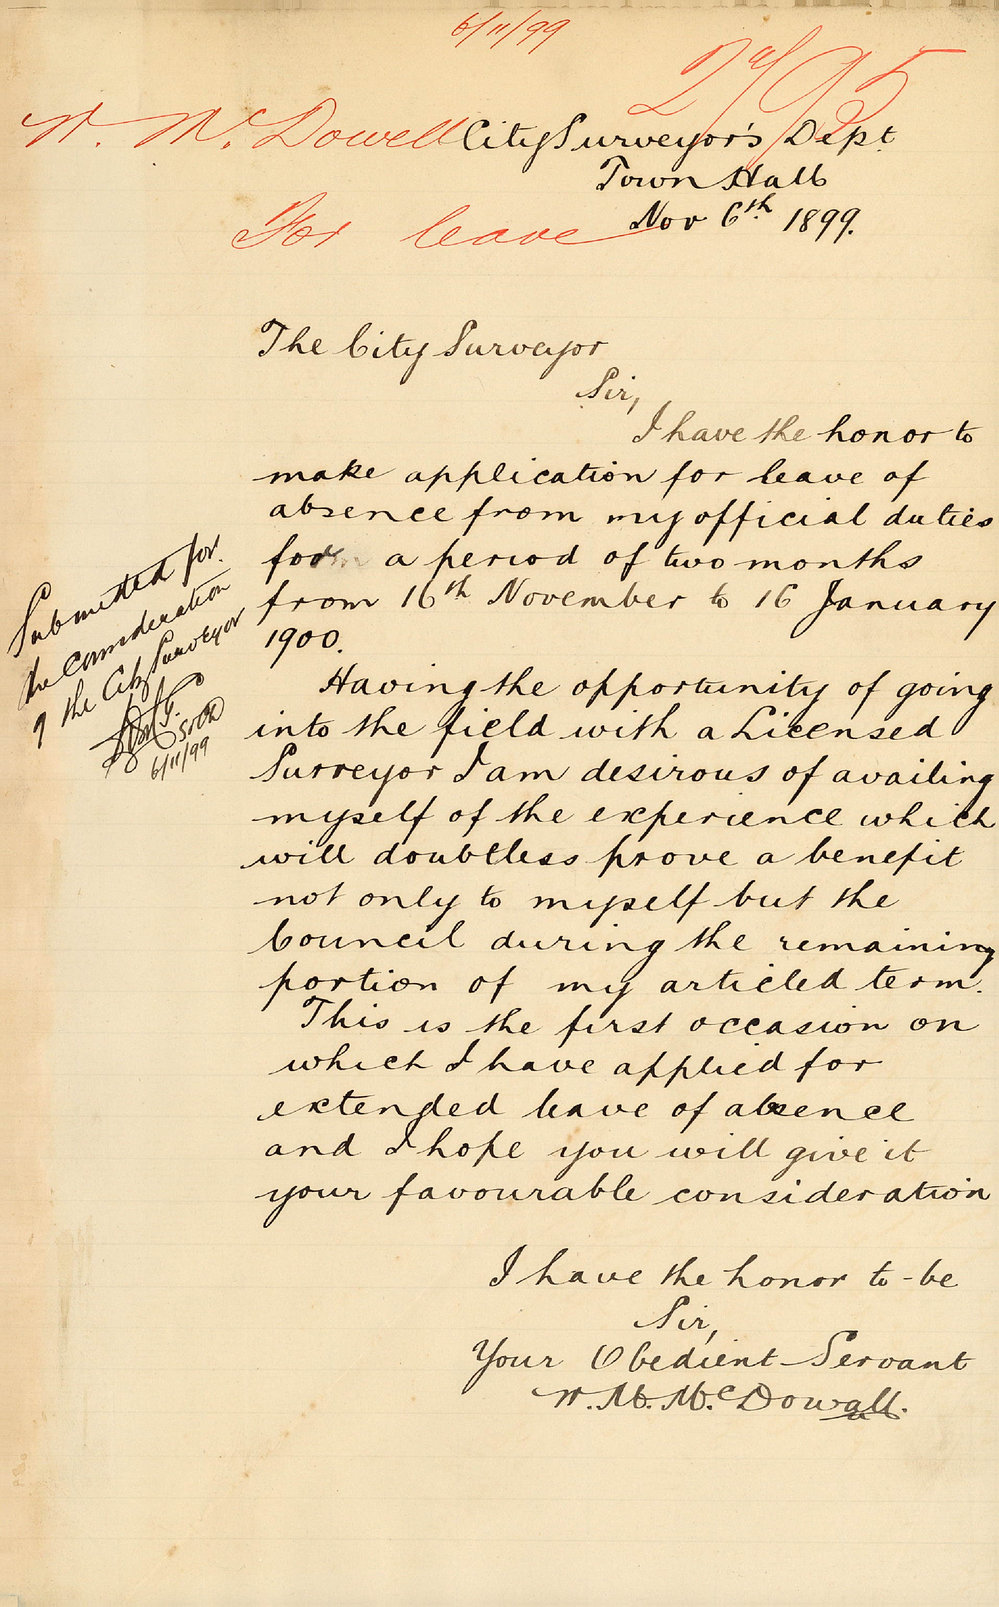 6/11/99
W. Mc. Dowell
For leave
City Surveyor's Dept.
Town Hall
Nov 6th 1899.
The City Surveyor
Sir,
I have the honor to
make application for leave of
absence from my official duties
for a period of two months
from 16th November to 16 January
1900.
Having the opportunity of going
into the field with a Licensed
Surveyor I am desirous of availing
myself of the experience which
will doubtless prove a benefit
not only to myself but the
Council during the remaining
portion of my articled term.
This is the first occasion on
which I have applied for
extended leave of absence
and I hope you will give it
your favourable consideration
I have the honor to be
Sir,
Your Obedient Servant
W. M. McDowall.
Submitted for
the consideration
of the City Surveyor
6/11/99